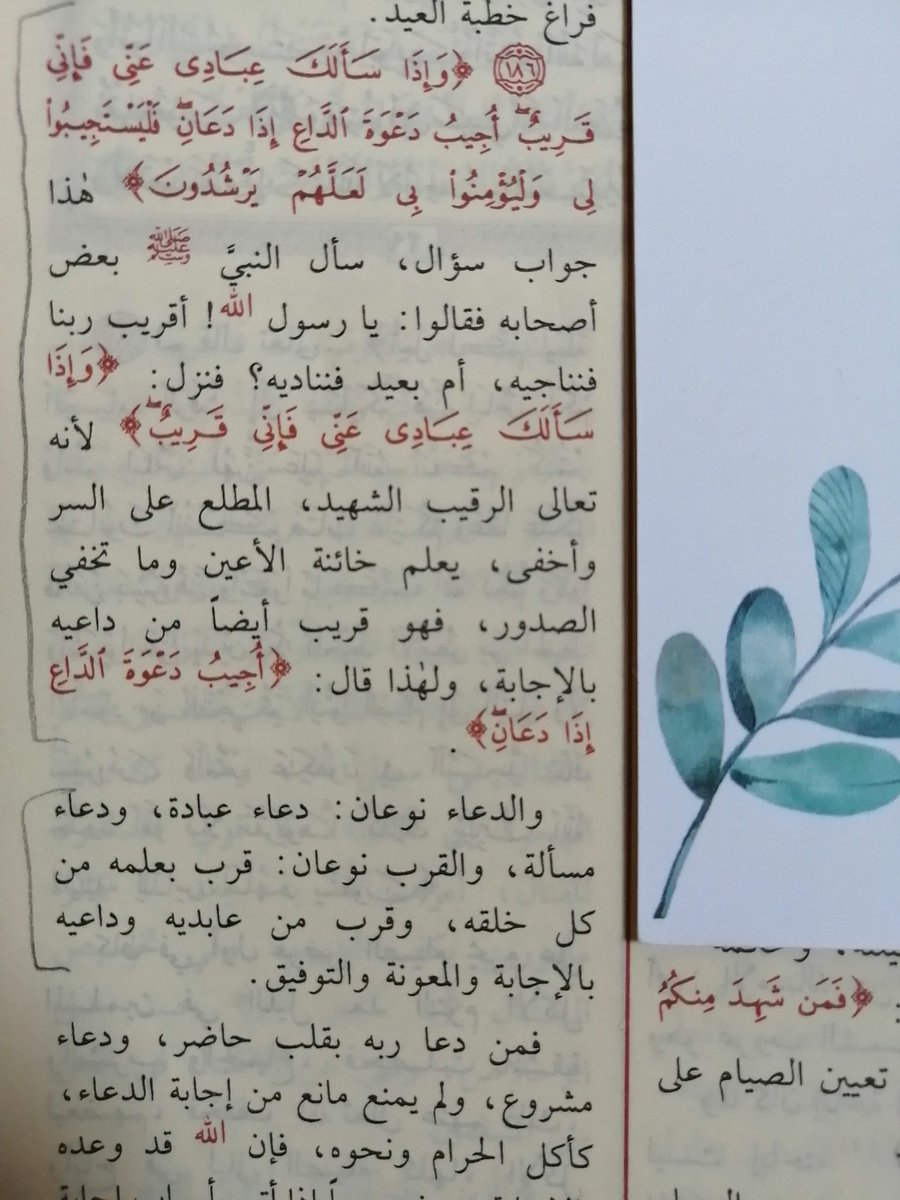 فراغ خطبة العيد.
(١٨٦) ﴿وَإِذَا سَأَلَكَ عِبَادِى عَنِّى فَإِنِّى
قَرِيبٌ ۖ أُجِيبُ دَعْوَةَ ٱلدَّاعِ إِذَا دَعَانِ ۖ فَلْيَسْتَجِيبُوا۟
لِى وَلْيُؤْمِنُوا۟ بِى لَعَلَّهُمْ يَرْشُدُونَ﴾ هٰذا
جواب سؤال، سأل النبيَّ ﷺ بعض
أصحابه فقالوا: يا رسول الله! أقريب ربنا
فنناجيه، أم بعيد فنناديه؟ فنزل: ﴿وَإِذَا
سَأَلَكَ عِبَادِى عَنِّى فَإِنِّى قَرِيبٌ ۖ﴾ لأنه
تعالى الرقيب الشهيد، المطلع على السر
وأخفى، يعلم خائنة الأعين وما تخفي
الصدور، فهو قريب أيضاً من داعيه
بالإجابة، ولهٰذا قال: ﴿أُجِيبُ دَعْوَةَ ٱلدَّاعِ
إِذَا دَعَانِ ۖ﴾.
والدعاء نوعان: دعاء عبادة، ودعاء
مسألة، والقرب نوعان: قرب بعلمه من
كل خلقه، وقرب من عابديه وداعيه
بالإجابة والمعونة والتوفيق.
فمن دعا ربه بقلب حاضر، ودعاء
مشروع، ولم يمنع مانع من إجابة الدعاء،
كأكل الحرام ونحوه، فإن الله قد وعده
﴿فَمَن شَهِدَ مِنكُمُ
تعيين الصيام على